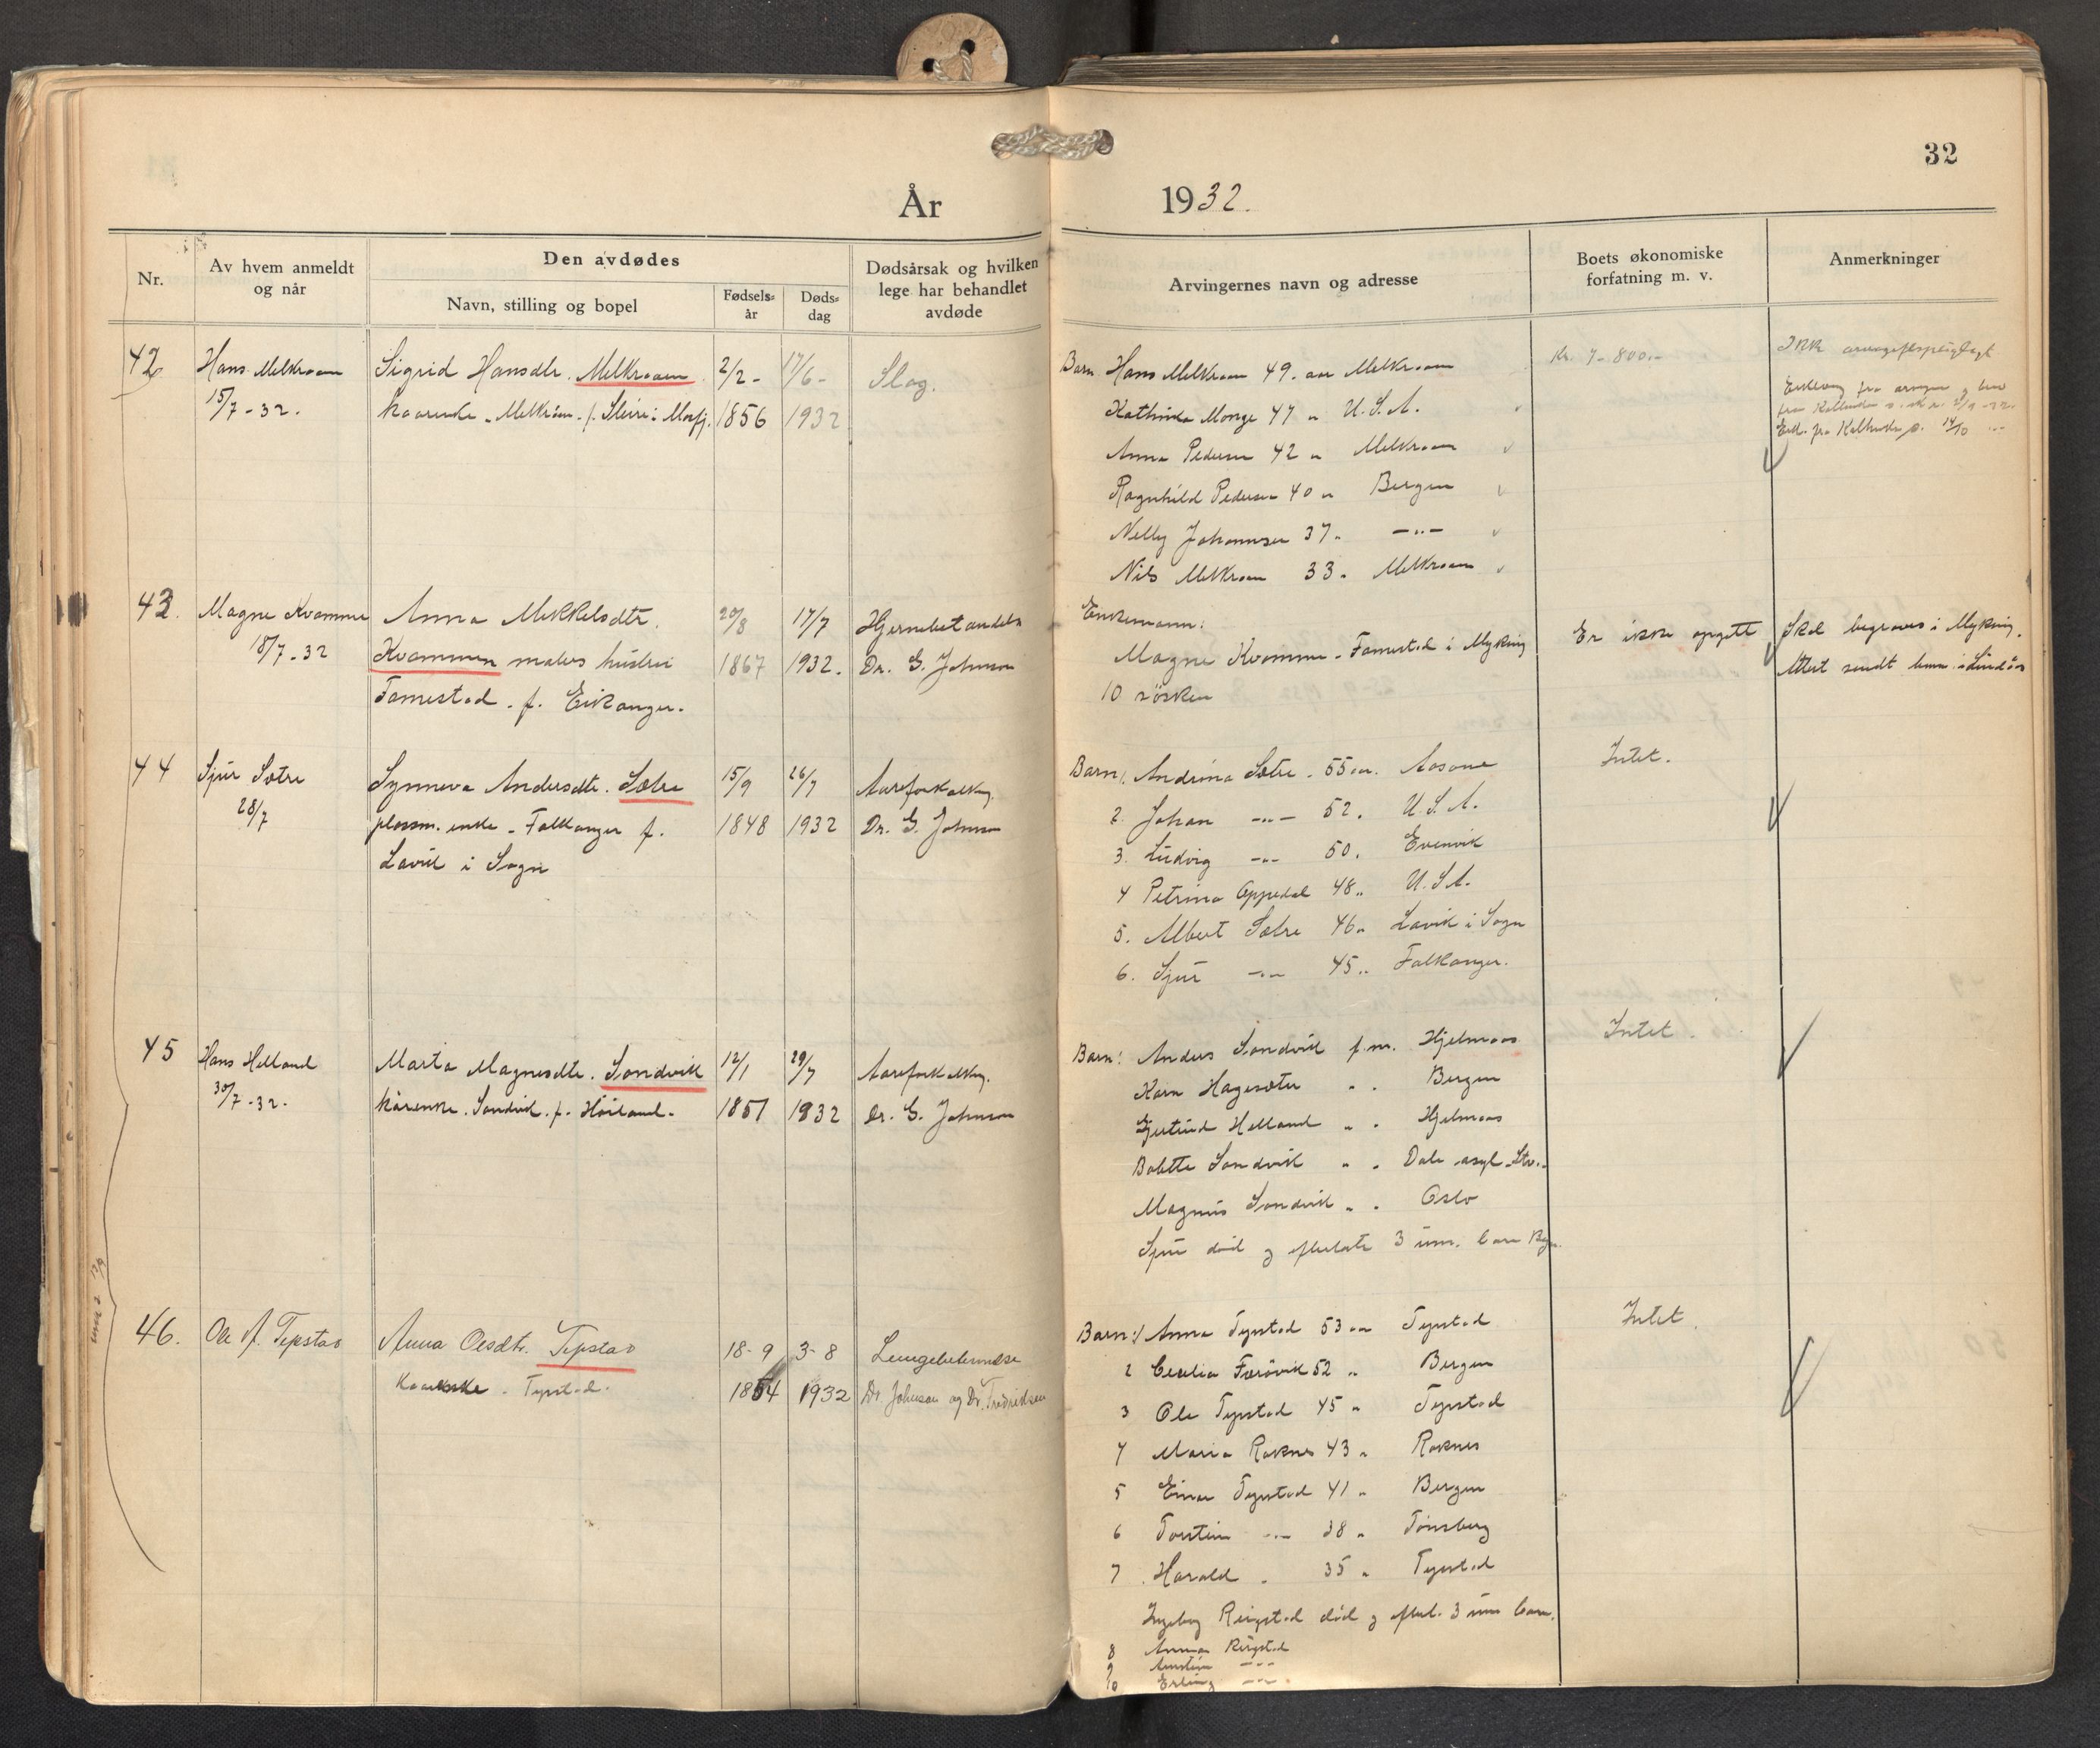 32
År 1932.
Nr.
Av hvem anmeldt
og når
Den avdødes
Navn, stilling og bopel
Fødsels-
år
Døds-
dag
Dødsårsak og hvilken
lege har behandlet
avdøde
Arvingernes navn og adresse
Boets økonomiske
forfatning m. v.
Anmerkninger
42
Hans Melkraaen
15/7-32.
Sigrid Hansdtr. Melkraaen
kaarenke - Melkråen - f.
2/2-
1856
17/6-
1932
Slag.
Barn Hans Melkraaen 49. aar Melkraaen
Kathinka Monge 47 " U.S.A.
Anna Pedersen 42 " Melkraaen
Ragnhild Pedersen 40 " Bergen
Nelly Johannsen 37 " -"-
Nils Melkraaen 33 " Melkraaen
Kr. 7-800.-
43.
Magne Kvamme
18/7-32
Anna Mikkelsdtr.
Kvammen malers hustru
Famestad. f. Eikanger.
20/8
1867
17/7
1932.
Hjernebetændelse
Dr. G. Johnson
Enkemann:
Magne Kvamme - Famestad i Myking
10 søsken
Er ikke opgitt
Skal begraves i Myking.
Attest sendt lensm. i Lindås
44
Sjur Sætre
28/7
Synneva Andersdtr. Sætre
plassm. enke - Falkanger f.
Lavik i Sogn
15/9
1848
26/7
1932
Aareforkalkng.
Dr. G. Johnson
Barn 1. Andrina Sætre - 55 aar.
2. Johan -"- 52. U.S.A.
3. Ludvig -"- 50. Evenvik
4 Petrina Oppedal 48 " U.S.A.
5. Albert Sætre 46 " Lavik i Sogn
6. Sjur -"- 45 " Falkanger.
Intet.
45
Hans Helland
30/7-32.
Marta Magnesdtr. Sandvik
kårenke. Sandvik. f. Høiland.
12/1
1851
29/7
1932
Aareforkalkng.
Dr. G. Johnson
Barn: Anders Sandvik f.m. Hjelmaas
Kari Hagesæter " " Bergen
Gjertrud Helland " " Hjelmaas
Bolette Sandvik " " Dale asyl
Magnus Sandvik " " Oslo
Sjur død og efterlate 3 um. barn
Intet.
46.
Ole A. Tepstad
Anna Olesdtr. Tepstad
Kaarenke - Tepstad.
18-9
1854
3-8
1932
Lungebetennelse
Dr. Johnson og Dr. Fredriksen
Barn: 1 Anna Tepstad 53 aar Tepstad
2 Cecilia Færøvik 52 " Bergen
3 Ole Tepstad 45 " Tepstad
4 Maria Raknes 43 " Raknes
5 Einar Tepstad 41 " Bergen
6 Torstein -"- 38 " Tønsberg
7 Harald " 35 " Tepstad
Ingeborg Ringstad død og efterl. 3 um barn.
8 Anna Ringstad
9 -"-
10 Erling -"-
Intet.